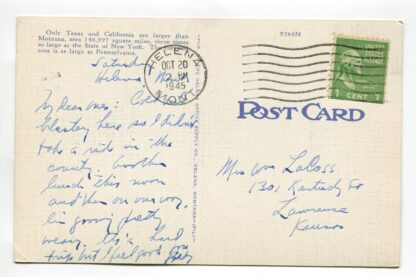 Only Texas and California are larger than
Montana, area 146,997 square miles, three times
as large as the State of New York. The
area is as large as Pennsylvania.
9266N
HELENA
OCT 20
2 PM
1945
MONT.
UNITED STATES
POSTAGE
1 CENT 1
POST CARD
Saturday
Helena Mont
My dear ones: Cold
blustery here so I didn't
take a ride in the
country. Another
lunch this noon
and then on our way.
I'm growing pretty
weary. It's a hard
trip but I feel good
Mrs Wm LaCoss
1301 Kentucky St
Lawrence
Kansas